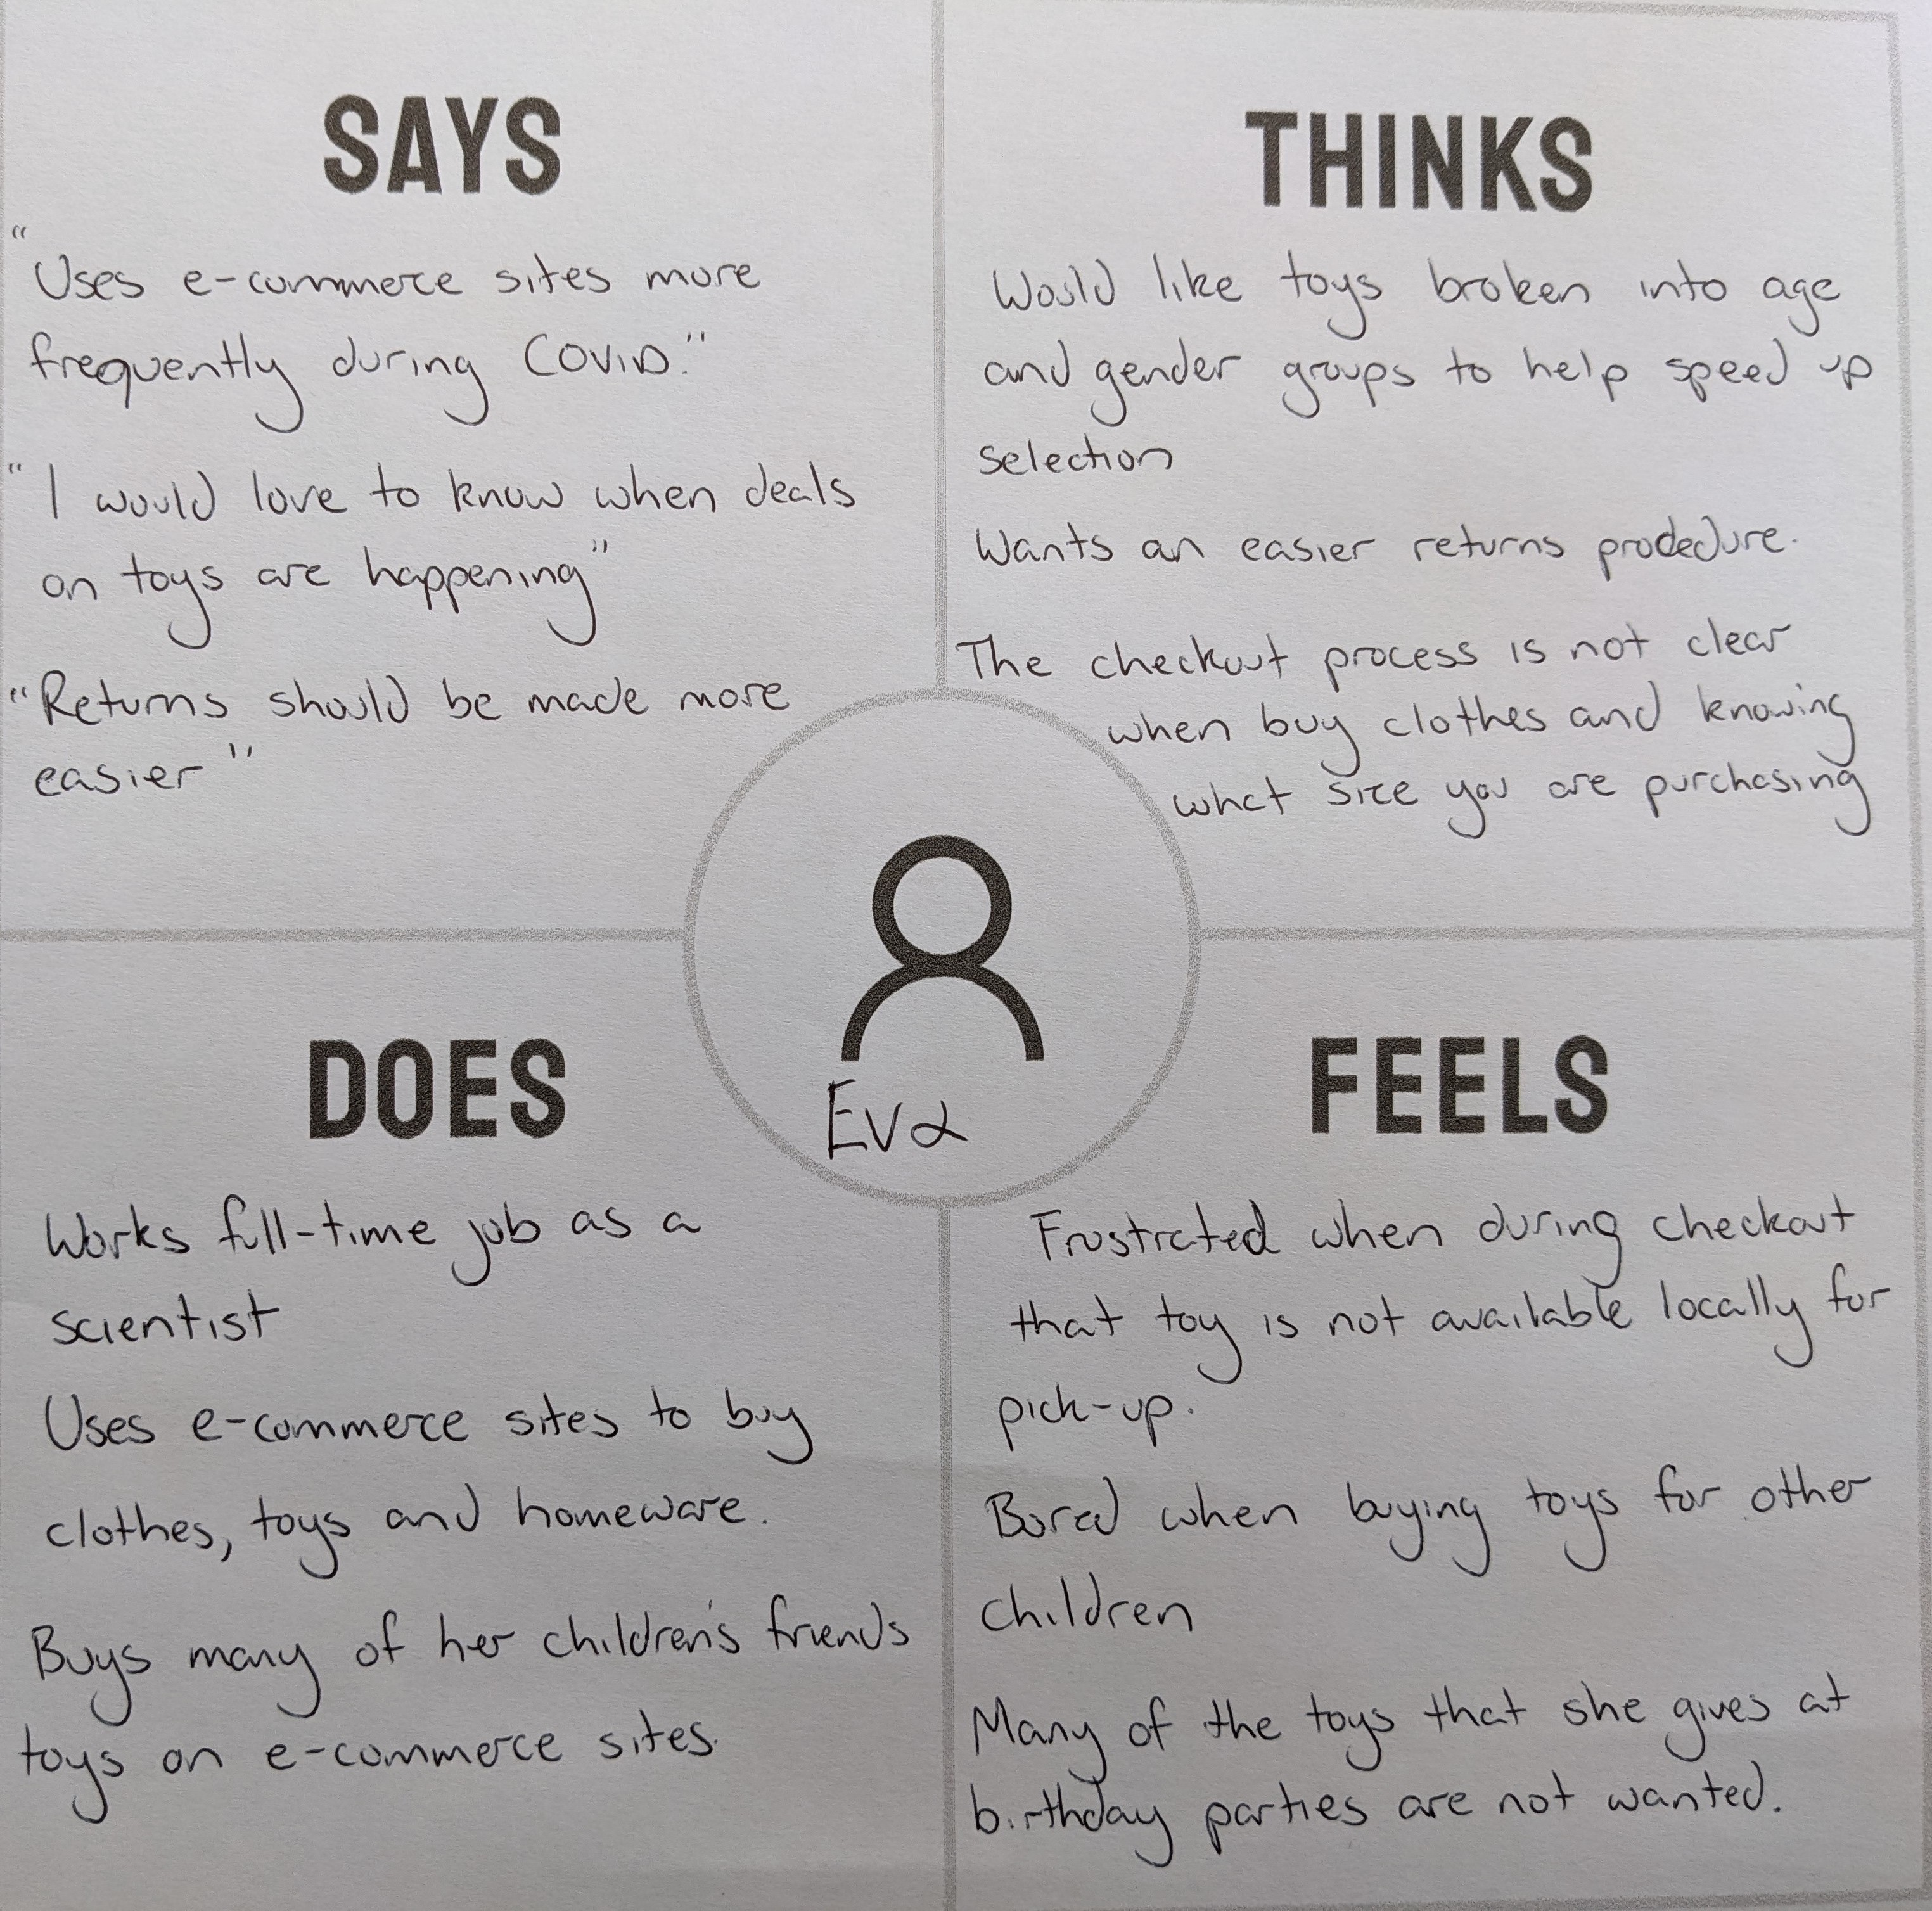 SAYS
"Uses e-commerce sites more
frequently during COVID."
"I would love to know when deals
on toys are happening"
"Returns should be made more
easier"
THINKS
Would like toys broken into age
and gender groups to help speed up
selection
Wants an easier returns prodedure.
The checkout process is not clear
when buy clothes and knowing
what size you are purchasing
Eva
DOES
Works full-time job as a
scientist
Uses e-commerce sites to buy
clothes, toys and homeware.
Buys many of her children's friends
toys on e-commerce sites.
FEELS
Frustrated when during checkout
that toy is not available locally for
pick-up.
Bored when buying toys for other
children
Many of the toys that she gives at
birthday parties are not wanted.